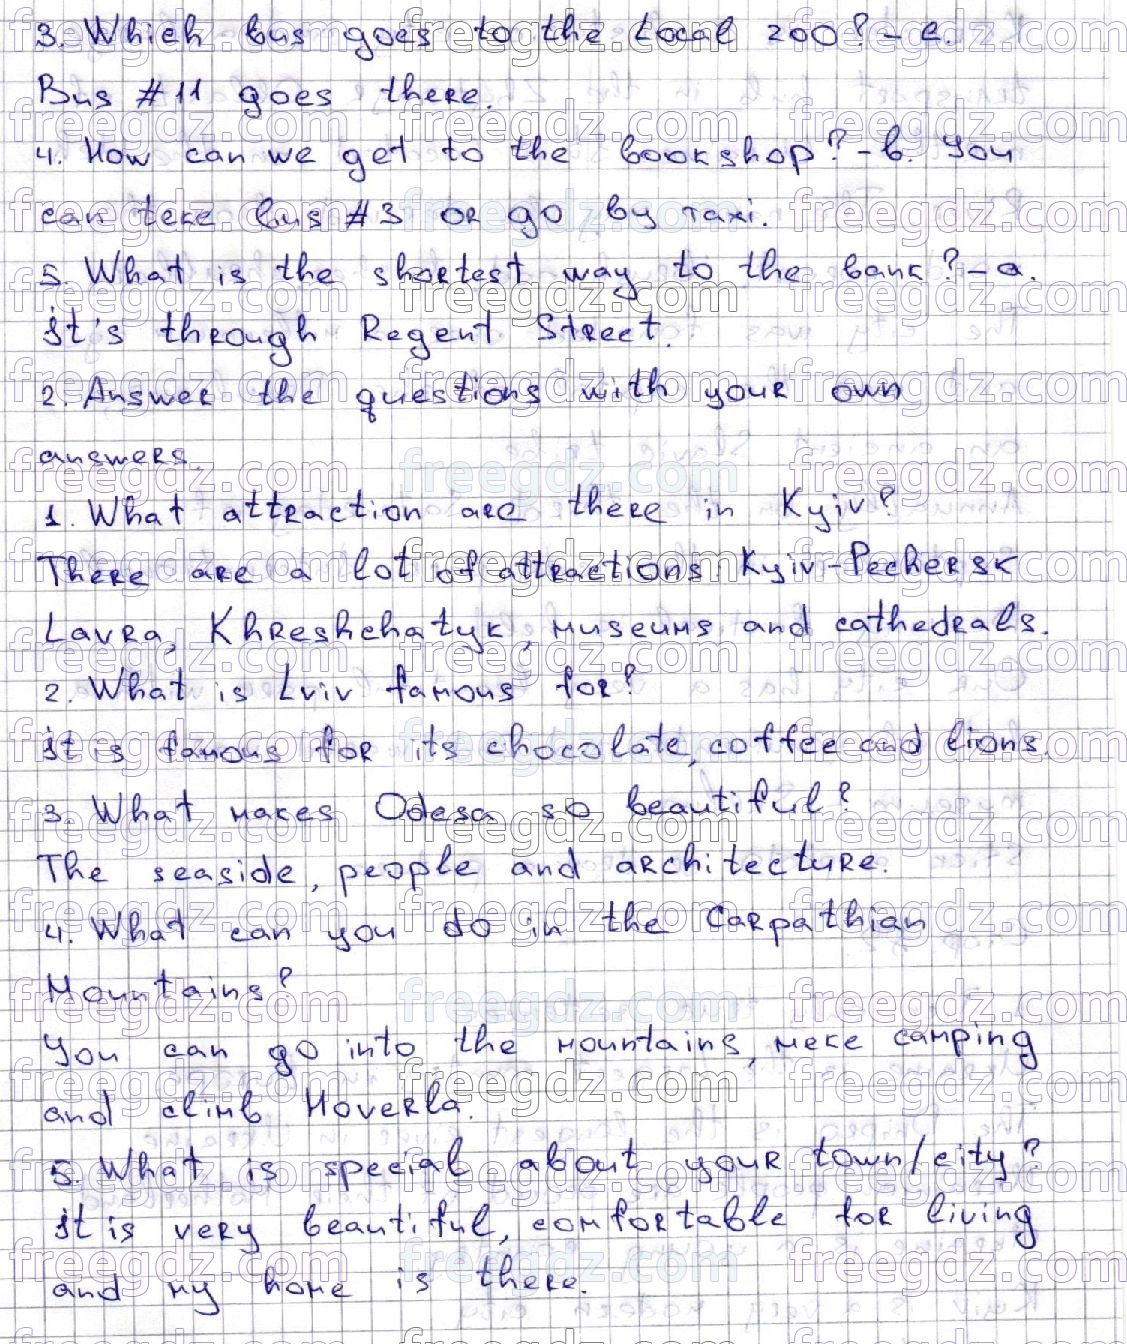 3. Which bus goes to the local zoo? - c.
Bus #11 goes there.
4. How can we get to the bookshop? - b. You
can teke bus #3 or go by taxi.
5. What is the shortest way to the bank? - a.
It's through Regent Street.
2. Answer the questions with your own
answers.
1. What attraction are there in Kyiv?
There are a lot of attractions Kyiv-Pechersk
Lavra, Khreshchatyk, museums and cathedrals.
2. What is Lviv famous for?
It is famous for its chocolate, coffee and lions.
3. What makes Odesa so beautiful?
The seaside, people and architecture.
4. What can you do in the Carpathian
Mountains?
You can go into the mountains, meke camping
and climb Hoverla.
5. What is special about your town/city?
It is very beautiful, comfortable for living
and my home is there.
freegdz.com